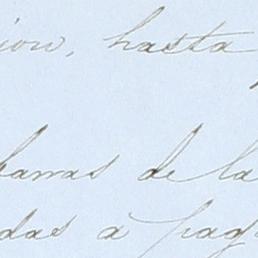 ion, hasta
barras de la
das a pag